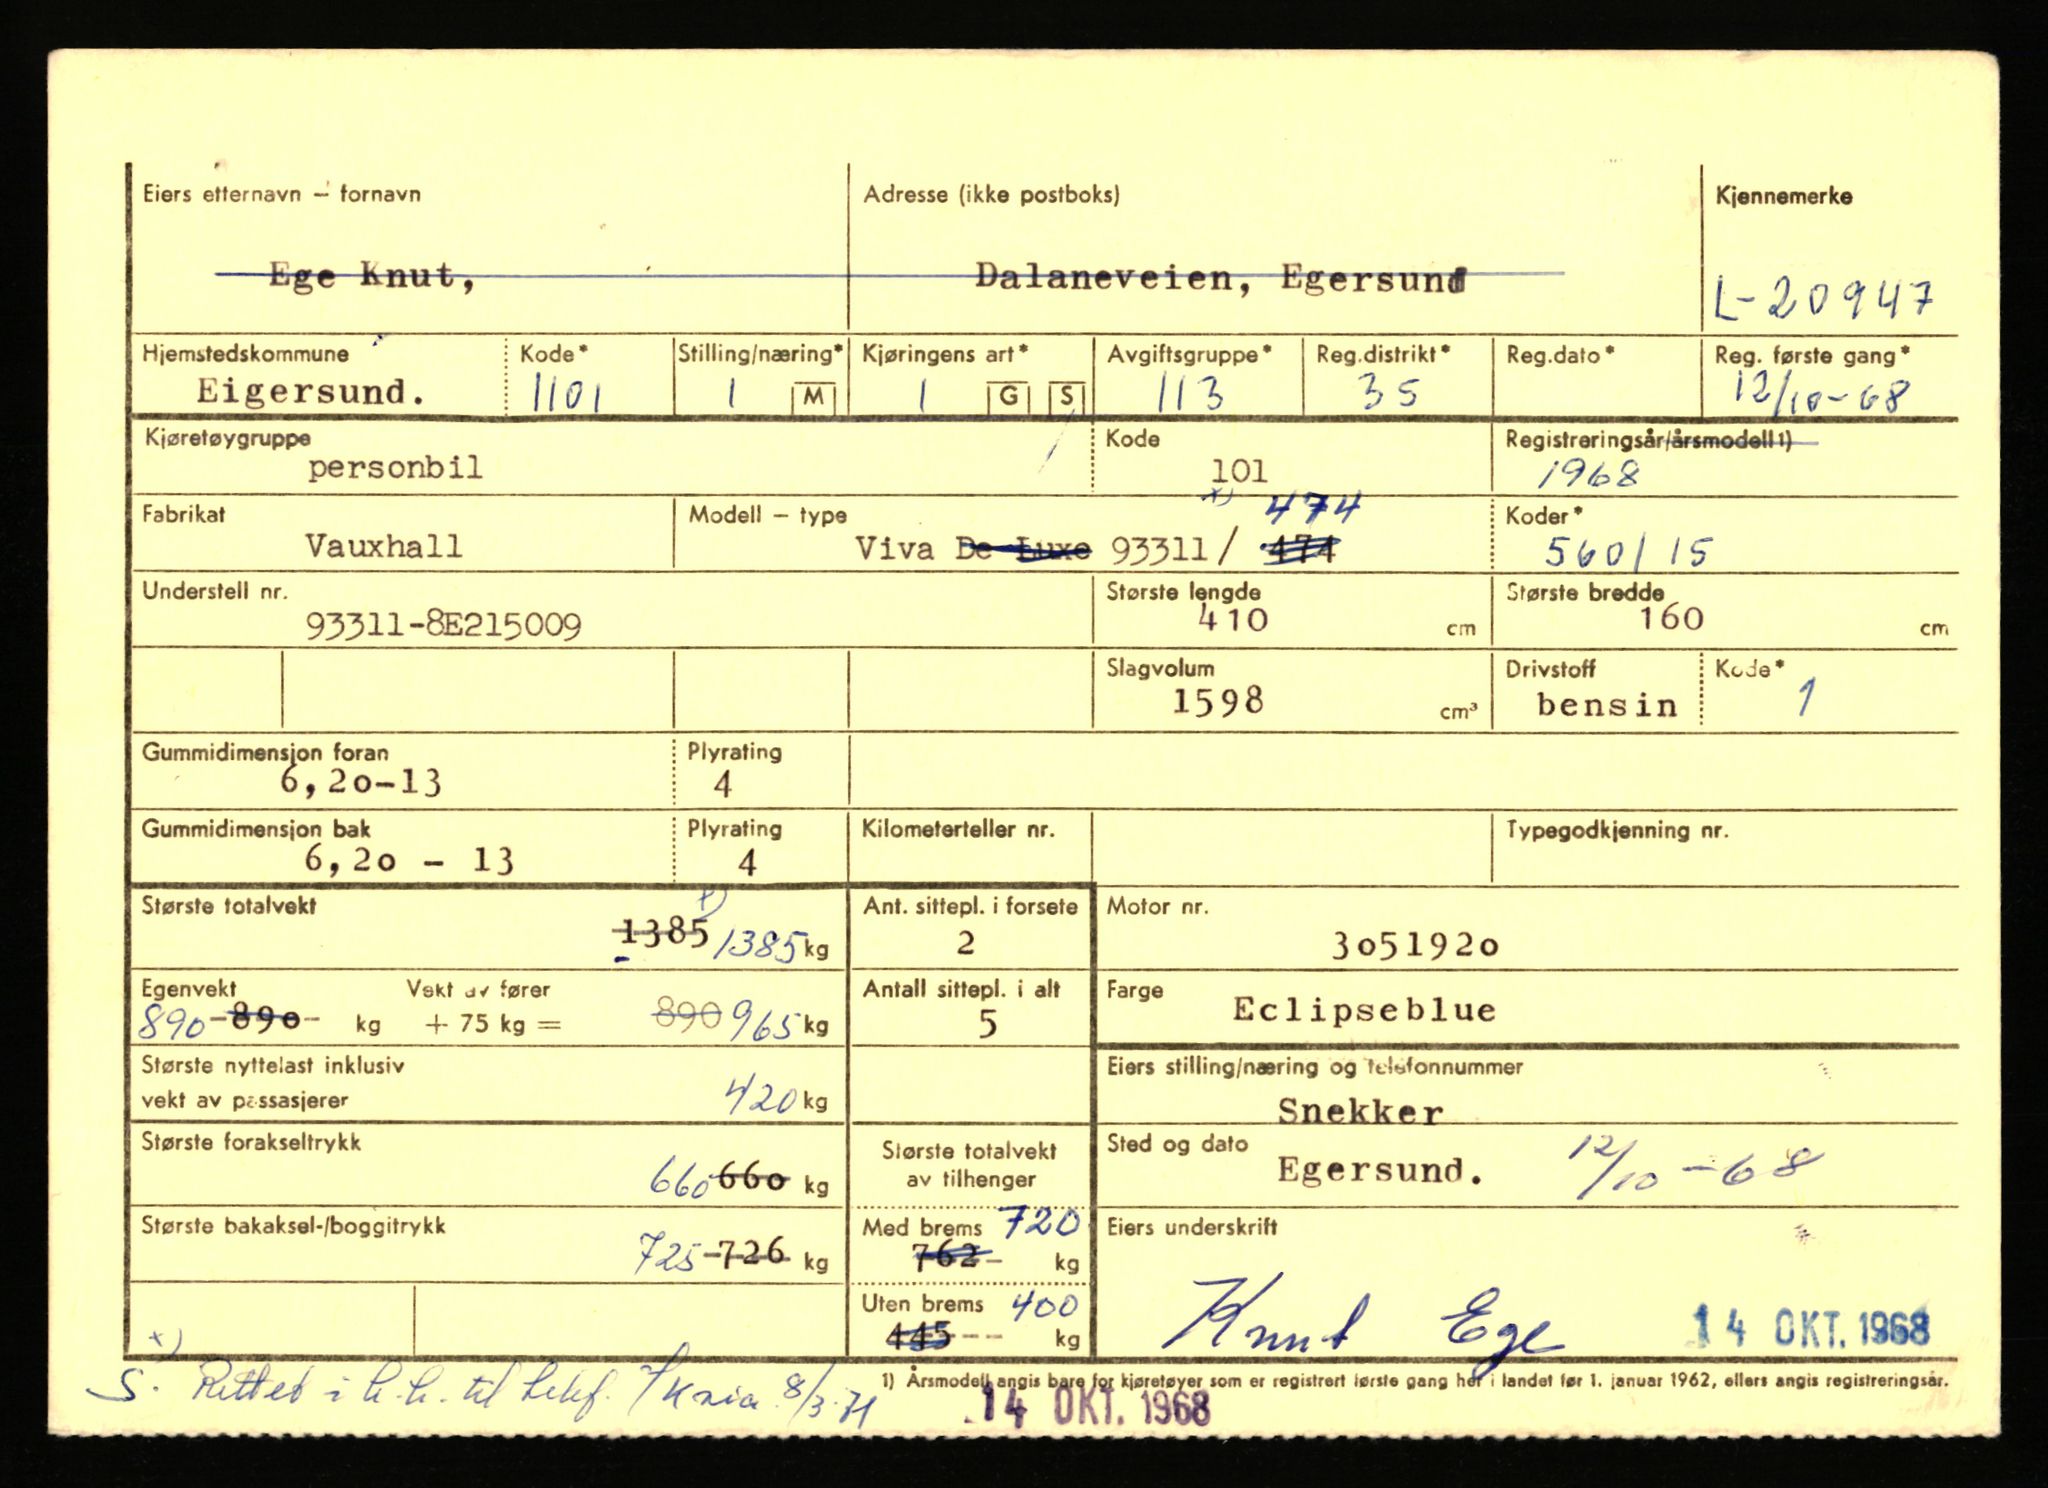 Eiers etternavn – fornavn Adresse (ikke postboks) Kjennemerke
Ege Knut, Dalaneveien, Egersund L-20947
Hjemstedskommune Kode* Stilling/næring* Kjøringens art* Avgiftsgruppe* Reg.distrikt* Reg.dato* Reg. første gang*
Eigersund. 1101 1 M 1 G S 113 35 12/10-68
Kjøretøygruppe Kode Registreringsår/årsmodell 1)
personbil 101 1968
Fabrikat Modell – type x) 474 Koder*
Vauxhall Viva De Luxe 93311/ 474 560/15
Understell nr. Største lengde Største bredde
93311-8E215009 410 cm 160 cm
Slagvolum Drivstoff Kode*
1598 cm³ bensin 1
Gummidimensjon foran Plyrating
6,20-13 4
Gummidimensjon bak Plyrating Kilometerteller nr. Typegodkjenning nr.
6,20 - 13 4
Største totalvekt x) Ant. sittepl. i forsete Motor nr.
1385 1385 kg 2 3051920
Egenvekt Vekt av fører Antall sittepl. i alt Farge
890 -890- kg + 75 kg = 890 965 kg 5 Eclipseblue
Største nyttelast inklusiv Eiers stilling/næring og telefonnummer
vekt av passasjerer 420 kg Snekker
Største forakseltrykk Største totalvekt Sted og dato
660 660 kg av tilhenger Egersund. 12/10-68
Største bakaksel-/boggitrykk Med brems 720 Eiers underskrift
725 -726 kg 762- kg
Uten brems 400 Knut Ege 14 OKT. 1968
445--- kg
x)
S. Rettet i h.h. til bekf. 8/3-71
1) Årsmodell angis bare for kjøretøyer som er registrert første gang her i landet før 1. januar 1962, ellers angis registreringsår.
14 OKT. 1968